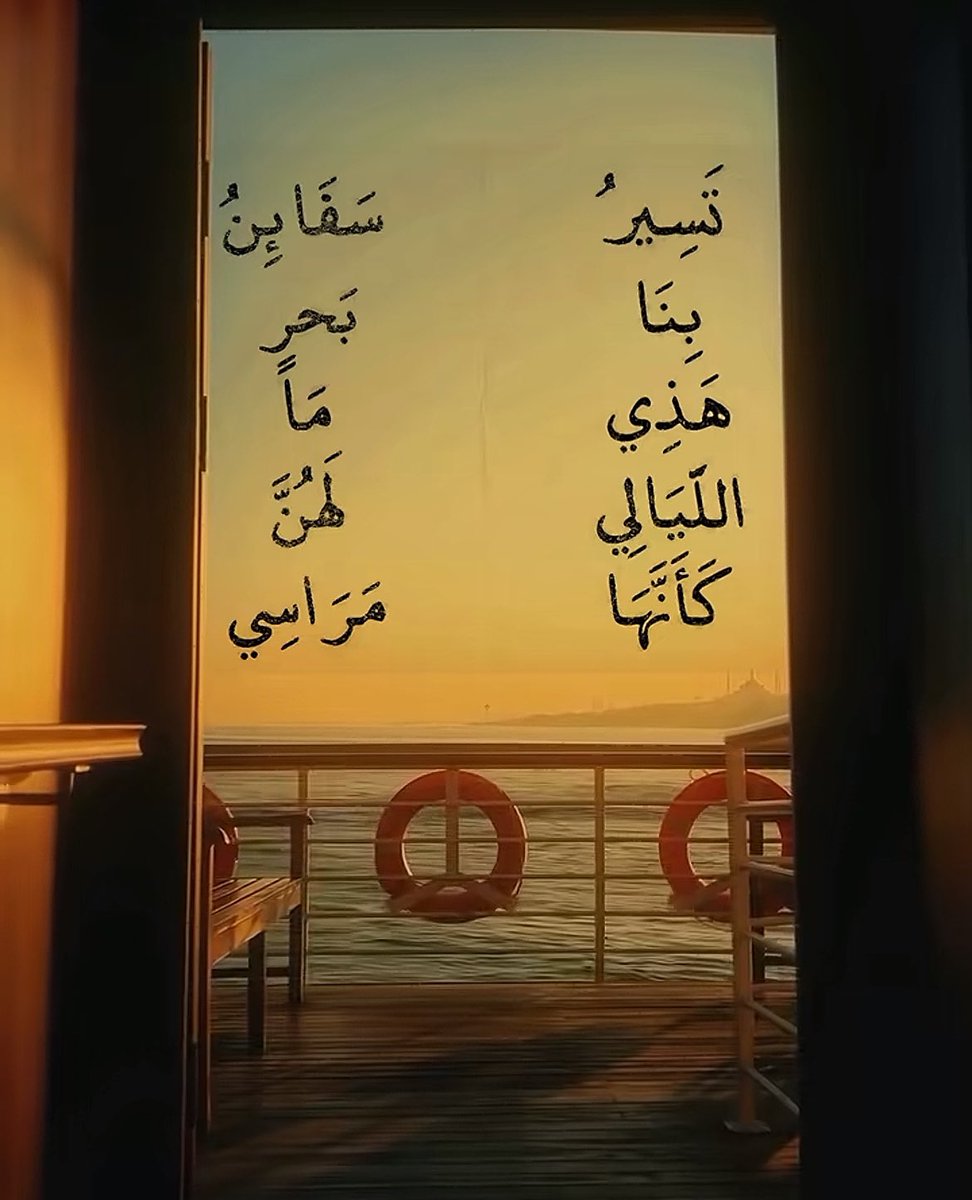 تَسِيرُ
بِنَا
هَذِي
اللَّيَالِي
كَأَنَّهَا
سَفَايِنُ
بَحرِ
مَاً
لَهُنَّ
مَرَاسِي